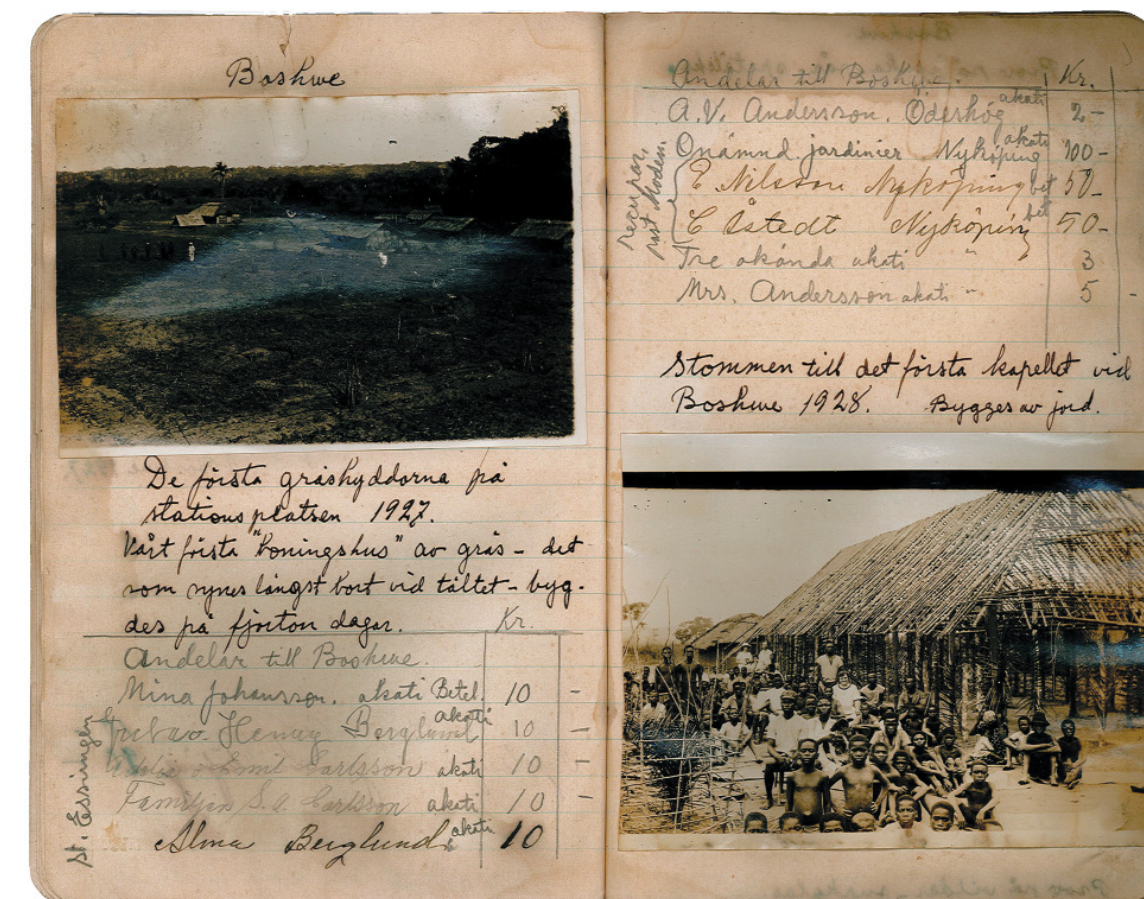 Boshwe
De första gräshyddorna på
stationsplatsen 1927.
Vårt första "boningshus" av gräs – det
som synes längst bort vid tältet – byg-
des på fjorton dagar.
Kr.
Andelar till Boshwe.
Nina Johansson. akati Betel. 10 –
Henny Berglund akati 10 –
Emil Carlsson akati 10 –
Familjen S.A. Carlsson akati 10 –
Alma Berglund akati 10
St. Essingen
Andelar till Boshwe. Kr.
A.V. Andersson. Öderhög akati 2 –
Onämnd jardinier Nyköping akati 100 –
E Nilsson Nyköping bet 50 –
C Åstedt Nyköping bet 50 –
Tre okända akati " 3
Mrs. Andersson akati " 5 –
Stommen till det första kapellet vid
Boshwe 1928. Bygges av jord.